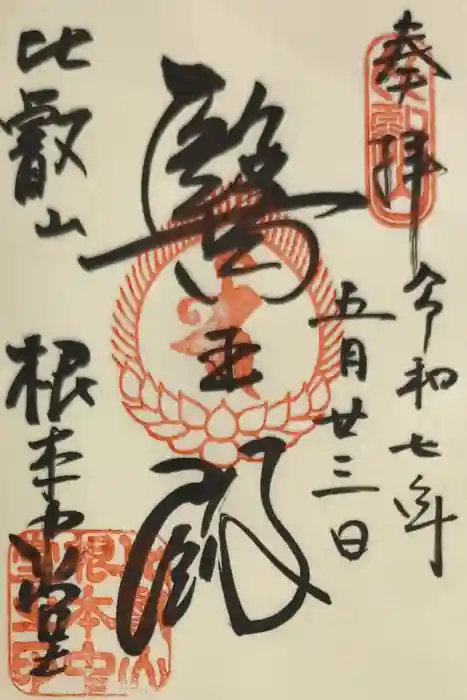 奉拝
令和七年
五月廿三日
醫王殿
比叡山
根本中堂